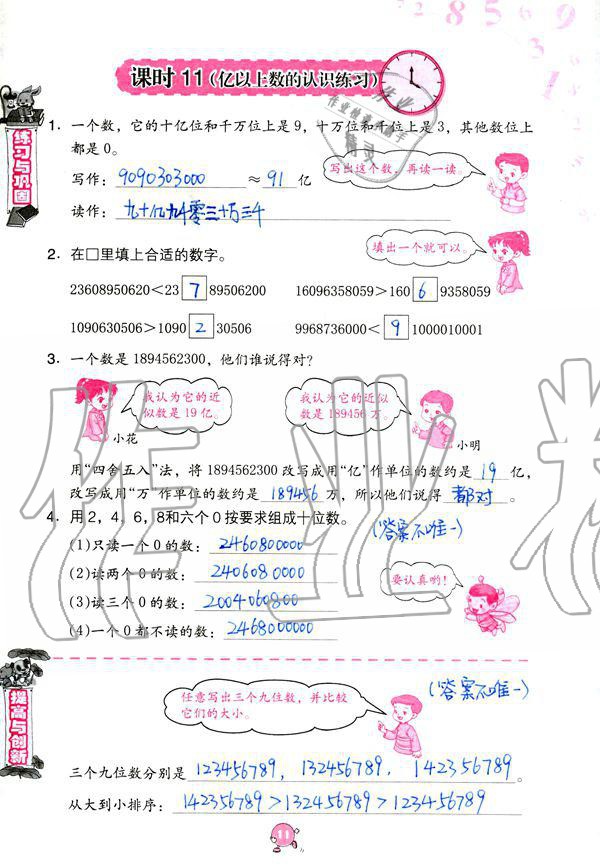 28569
31
课时11(亿以上数的认识练习)
练习与巩固
1. 一个数,它的十亿位和千万位上是9,十万位和千位上是3,其他数位上
都是0。
写出这个数,再读一读。
写作:9090303000≈91亿
读作:九十亿九千零三十万三千
2. 在□里填上合适的数字。
填出一个就可以。
23608950620<23 7 89506200 16096358059>160 6 9358059
1090630506>1090 2 30506 9968736000< 9 1000010001
3. 一个数是1894562300,他们谁说得对?
我认为它的近
似数是19亿。
小花
我认为它的近似
数是189456万。
小明
用“四舍五入”法,将1894562300改写成用“亿”作单位的数约是19亿,
改写成用“万”作单位的数约是189456万,所以他们说得都对。
4. 用2,4,6,8和六个0按要求组成十位数。
(答案不唯一)
(1)只读一个0的数:2460800000
(2)读两个0的数:2406080000
(3)读三个0的数:2004060800
(4)一个0都不读的数:2468000000
要认真哟!
提高与创新
任意写出三个九位数,并比较
它们的大小。
(答案不唯一)
三个九位数分别是123456789,133456789,142356789。
从大到小排序:142356789>133456789>123456789
11
作业精灵